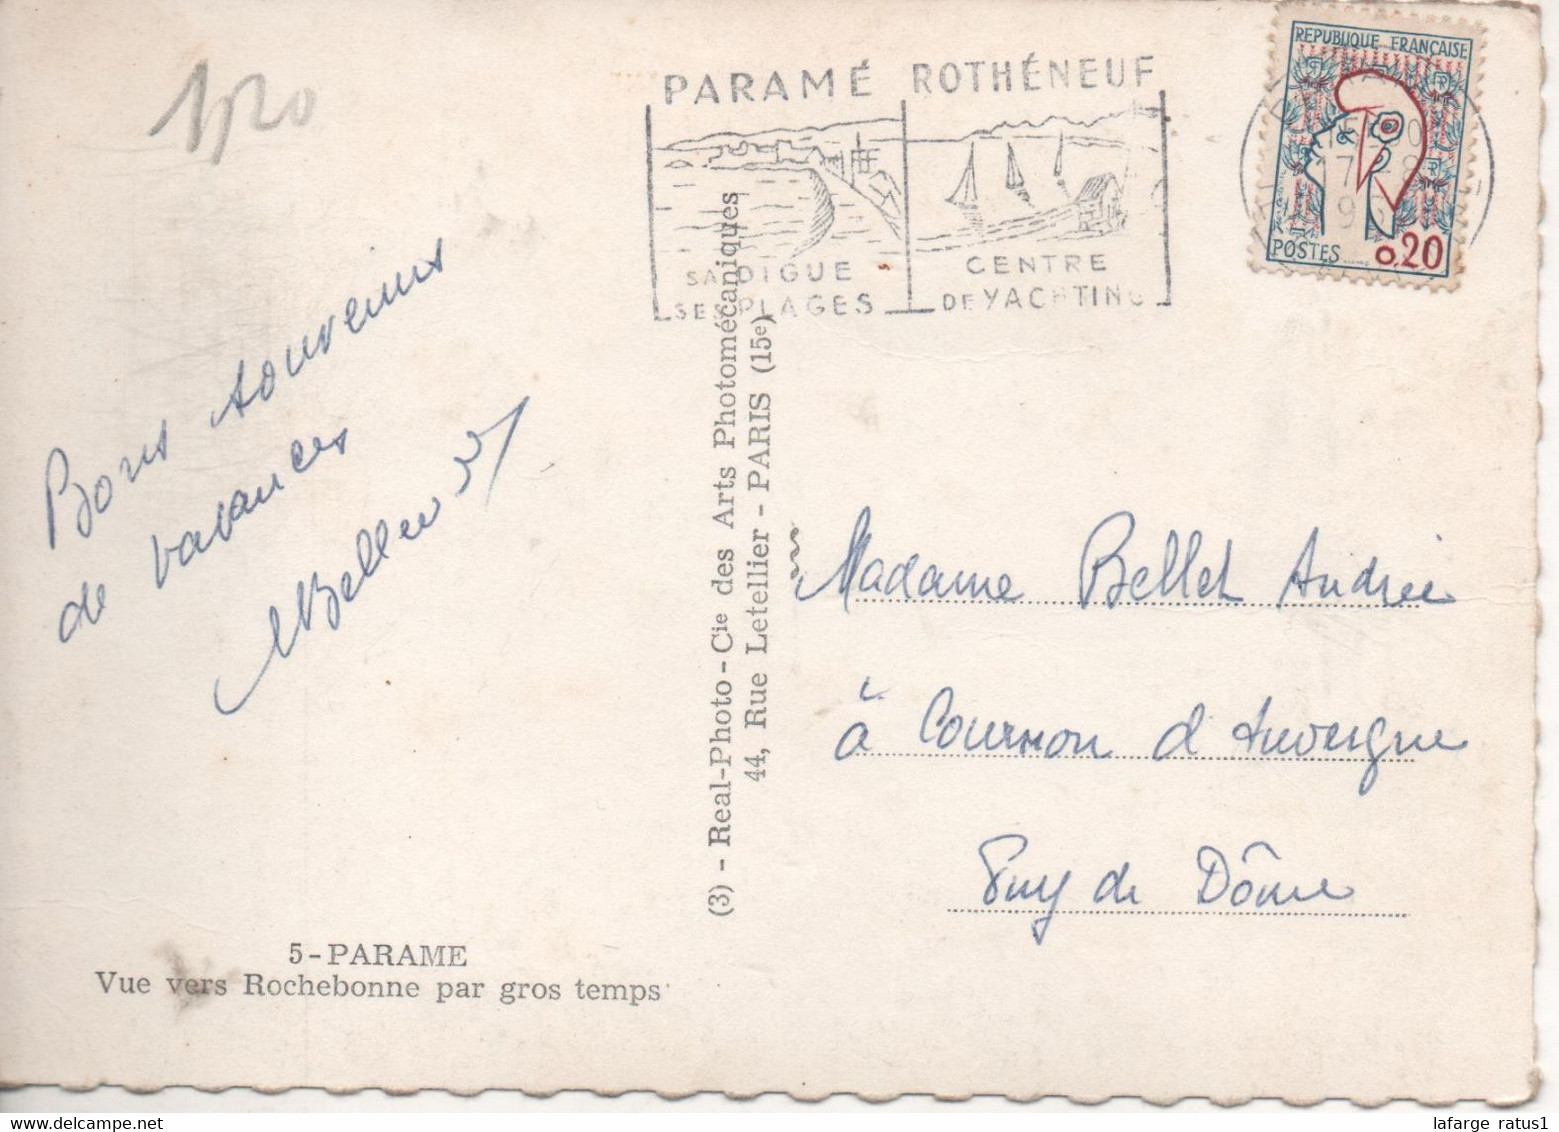 1,50
PARAMÉ ROTHÉNEUF
SA DIGUE
SES PLAGES
CENTRE
DE YACHTING
REPUBLIQUE FRANÇAISE
POSTES
0,20
Bons souvenirs
de vacances
(3) - Real-Photo - Cie des Arts Photomécaniques
44, Rue Letellier - PARIS (15e)
Madame Bellet Andrée
à Cournon d'Auvergne
Puy de Dôme
5 - PARAME
Vue vers Rochebonne par gros temps
lafarge ratus1